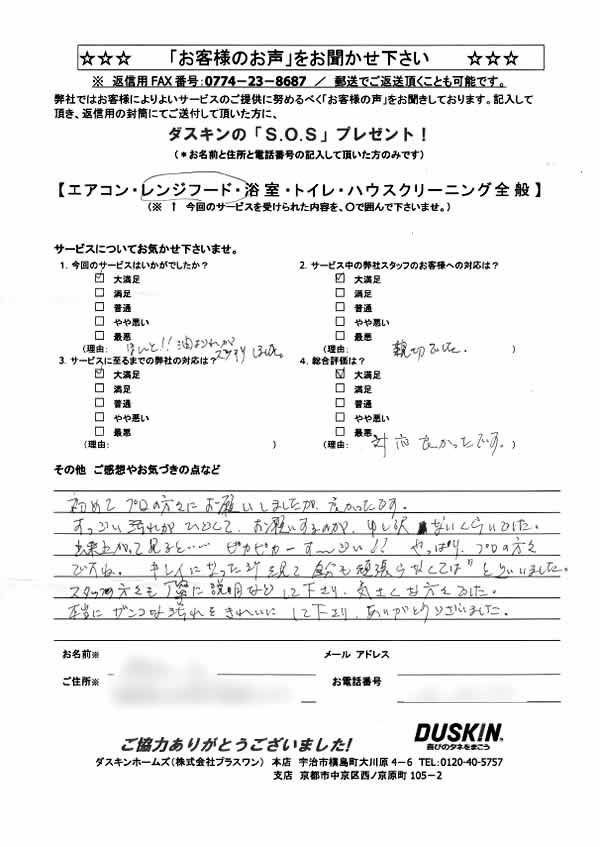 ☆☆☆ 「お客様のお声」をお聞かせ下さい ☆☆☆
※ 返信用FAX番号：0774－23－8687 ／ 郵送でご返送頂くことも可能です。
弊社ではお客様によりよいサービスのご提供に努めるべく「お客様の声」をお聞きしております。記入して
頂き、返信用の封筒にてご送付して頂いた方に、
ダスキンの「S.O.S」プレゼント！
（＊お名前と住所と電話番号の記入して頂いた方のみです）
【エアコン・レンジフード・浴室・トイレ・ハウスクリーニング全般】
（※ ↑ 今回のサービスを受けられた内容を、○で囲んで下さいませ。）
サービスについてお気かせ下さいませ。
1. 今回のサービスはいかがでしたか？
大満足
満足
普通
やや悪い
最悪
（理由: ほんと!! 油よごれが
スッキリしました。
2. サービス中の弊社スタッフのお客様への対応は？
大満足
満足
普通
やや悪い
最悪
（理由: 親切でした。 ）
3. サービスに至るまでの弊社の対応は？
大満足
満足
普通
やや悪い
最悪
（理由: ）
4. 総合評価は？
大満足
満足
普通
やや悪い
最悪
（理由: 対応良かったです。）
その他 ご感想やお気づきの点など
初めてプロの方々にお願いしましたが、良かったです。
すっごい汚れがひどくて、お願いするのが、申し訳ないくらいでした。
出来上がって見ると…… ピカピカーすーごい!! やっぱり、プロの方々
ですね。キレイになった所を見て 自分も頑張らなくては" と思いました。
スタッフの方々も丁寧に説明などして下さり、気さくな方々でした。
本当にガンコな汚れをきれいにして下さり、ありがとうございました。
お名前※
メール アドレス
ご住所※
お電話番号
ご協力ありがとうございました！
DUSKIN
喜びのタネをまこう
ダスキンホームズ（株式会社プラスワン） 本店 宇治市槇島町大川原 4－6 TEL：0120-40-5757
支店 京都市中京区西ノ京原町 105－2